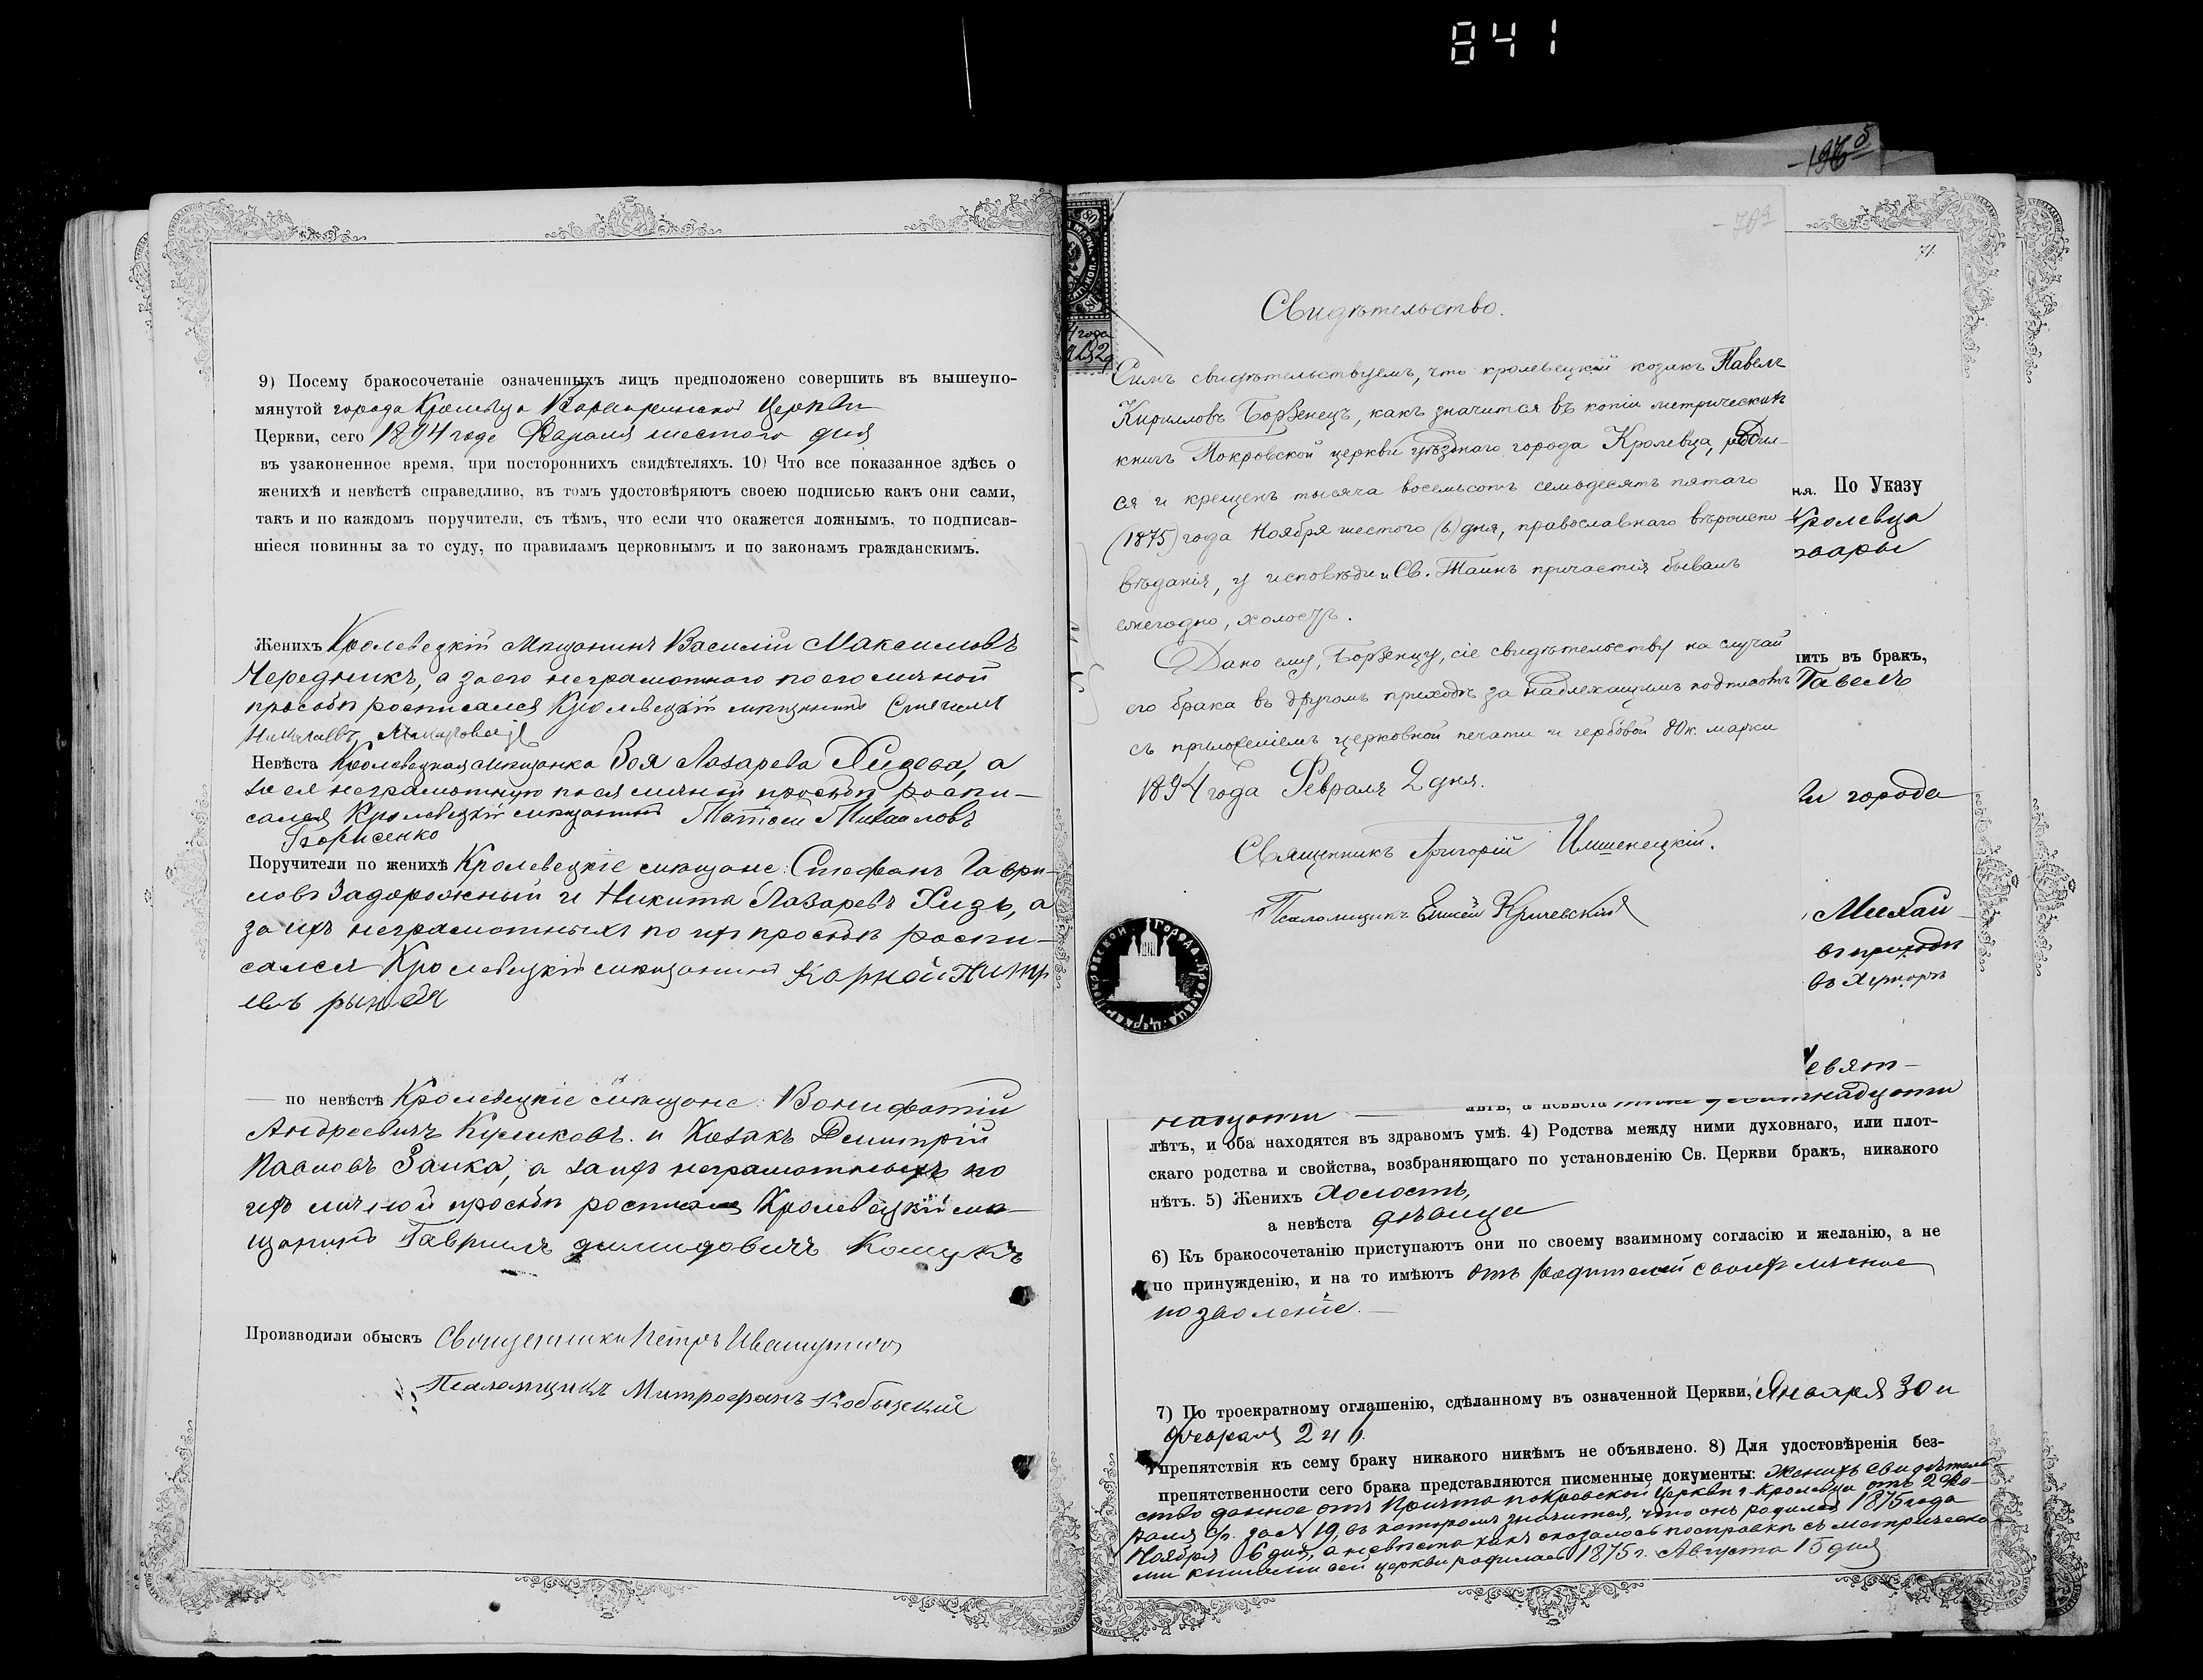 841
-1965
9) Посему бракосочетаніе означенныхъ лицъ предположено совершить въ вышеупо-
мянутой города Кролевца Варваринской Церкви
Церкви, сего 1894 года Февраля шестого дня
въ узаконенное время, при постороннихъ свидѣтеляхъ. 10) Что все показанное здѣсь о
женихѣ и невѣстѣ справедливо, въ томъ удостовѣряютъ своею подписью какъ они сами,
такъ и по каждомъ поручители, съ тѣмъ, что если что окажется ложнымъ, то подписав-
шіеся повинны за то суду, по правиламъ церковнымъ и по законамъ гражданскимъ.
Женихъ Кролевецкій мѣщанинъ Василій Максимовъ
Чередникъ, а за его неграмотного по его личной
просьбѣ росписался Кролевецкій мѣщанинъ Стефанъ
Николаевъ
Невѣста Кролевецкая мѣщанка Зоя Лазарева Хизева, а
за ея неграмотную по ея личной просьбѣ роспи-
сался Кролевецкій мѣщанинъ Матвѣй Михайловъ
Борисенко
Поручители по женихѣ Кролевецкіе мѣщане: Стефанъ Гаври-
ловъ Задорожный и Никита Лазаревъ Хизь, а
за ихъ неграмотныхъ по ихъ просьбѣ роспи-
сался Кролевецкій мѣщанинъ Карпъ
по невѣстѣ Кролевецкіе мѣщане: Вонифатій
Андреевичъ Куликовъ и Козакъ Димитрій
Павловъ Заика, а за ихъ неграмотныхъ по
ихъ личной просьбѣ росписался Кролевецкій мѣ-
щанинъ Гавриилъ Демидовичъ Кошукъ
Производили обыскъ Священникъ Петръ
Псаломщикъ Митрофанъ Кобыцкій
71.
Свидѣтельство.
Симъ свидѣтельствуемъ, что кролевецкій козакъ Павелъ
Кирилловъ Борзенецъ, какъ значится въ копіи метрическихъ
книгъ Покровской церкви уѣзднаго города Кролевца, родил-
ся и крещенъ тысяча восемьсотъ семьдесятъ пятаго
(1875) года Ноября шестого (6) дня, православнаго вѣроиспо
вѣданія, у исповѣди и Св. Таинъ причастія бывалъ
ежегодно, холостъ.
Дано ему, Борзенцу, сіе свидѣтельству на случай
его брака въ другомъ приходѣ за надлежащимъ подписомъ
съ приложеніемъ церковной печати и гербовой 80 к. марки
1894 года Февраля 2 дня.
Священникъ Григорій Имшенецкій.
Псаломщикъ Елисей Кричевскій
ня. По Указу
Кролевца
вары
ить въ бракъ,
Павелъ
города
Михай
въ приходѣ
въ Хуторѣ
евят-
надцати
лѣтъ, а невѣста
лѣтъ, и оба находятся въ здравомъ умѣ. 4) Родства между ними духовнаго, или плот-
скаго родства и свойства, возбраняющаго по установленію Св. Церкви бракъ, никакого
нѣтъ. 5) Женихъ холостъ,
а невѣста дѣвица
6) Къ бракосочетанію приступаютъ они по своему взаимному согласію и желанію, а не
по принужденію, и на то имѣютъ отъ родителей своихъ личное
позволеніе.
7) По троекратному оглашенію, сдѣланному въ означенной Церкви, Января 30 и
февраля 2 и 6
препятствія къ сему браку никакого никѣмъ не объявлено. 8) Для удостовѣренія без-
препятственности сего брака представляются писменные документы: Женихъ свидѣтель-
ство данное отъ Причта покровской церкви г. Кролевца отъ 2 Фев-
раля с/г. за № 19, въ которомъ значится, что онъ родился 1875 года
Ноября 6 дня, а невѣста какъ оказалось по справкѣ съ метрическо-
ми книгами сей церкви родилась 1875 г. Августа 15 дня